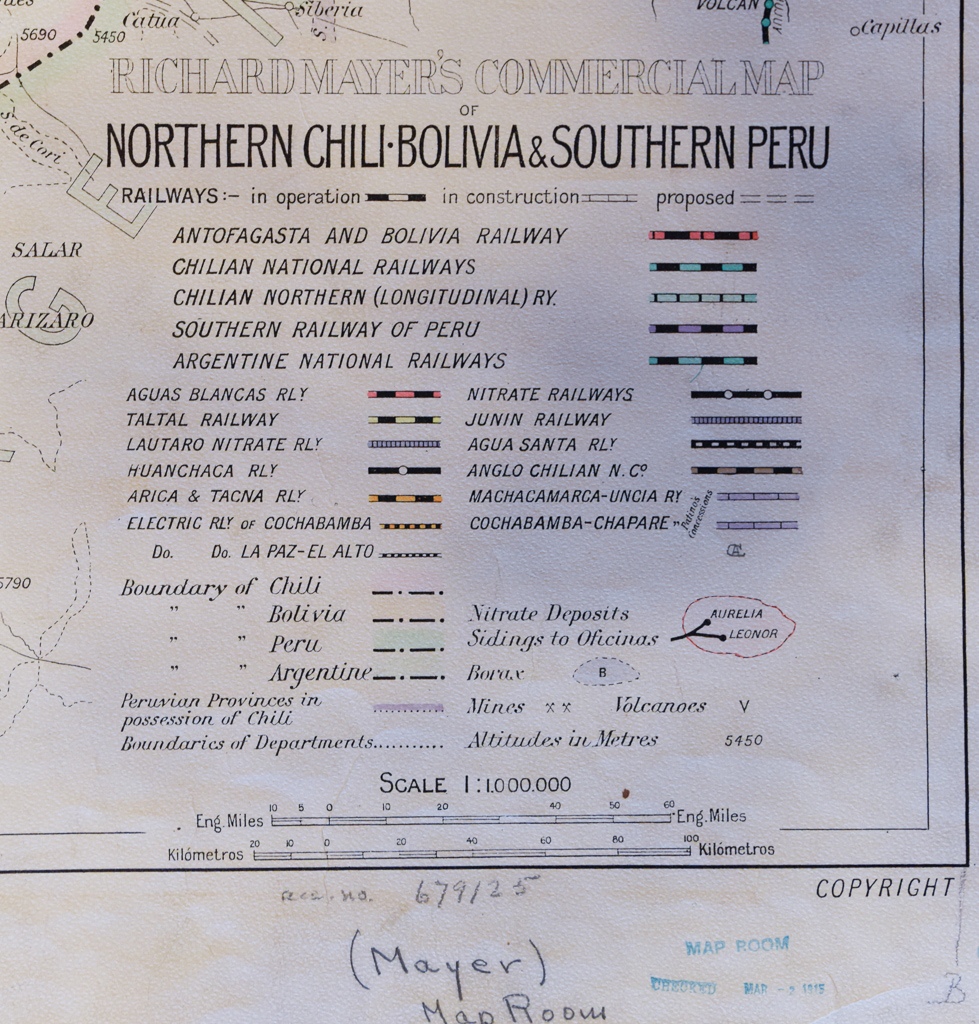 5690
Catua
5450
Siberia
VOLCAN
Capillas
S. de Cori
SALAR
ARIZARO
5790
RICHARD MAYER'S COMMERCIAL MAP
OF
NORTHERN CHILI·BOLIVIA & SOUTHERN PERU
RAILWAYS:- in operation in construction proposed
ANTOFAGASTA AND BOLIVIA RAILWAY
CHILIAN NATIONAL RAILWAYS
CHILIAN NORTHERN (LONGITUDINAL) RY.
SOUTHERN RAILWAY OF PERU
ARGENTINE NATIONAL RAILWAYS
AGUAS BLANCAS RLY NITRATE RAILWAYS
TALTAL RAILWAY JUNIN RAILWAY
LAUTARO NITRATE RLY AGUA SANTA RLY
HUANCHACA RLY ANGLO CHILIAN N. Co
ARICA & TACNA RLY MACHACAMARCA-UNCIA RY
ELECTRIC RLY OF COCHABAMBA COCHABAMBA-CHAPARE "
Patino's Concessions
Do. Do. LA PAZ-EL ALTO
Boundary of Chili
" " Bolivia Nitrate Deposits AURELIA
" " Peru Sidings to Oficinas LEONOR
" " Argentine Borax B
Peruvian Provinces in Mines Volcanoes V
possession of Chili
Boundaries of Departments.......... Altitudes in Metres 5450
SCALE 1:1.000.000
10 5 0 10 20 40 50 60
Eng. Miles Eng. Miles
20 10 0 20 40 60 80 100
Kilómetros Kilómetros
COPYRIGHT
rec. no. 679125
(Mayer)
Map Room
MAP ROOM
MAR - 2 1915
B